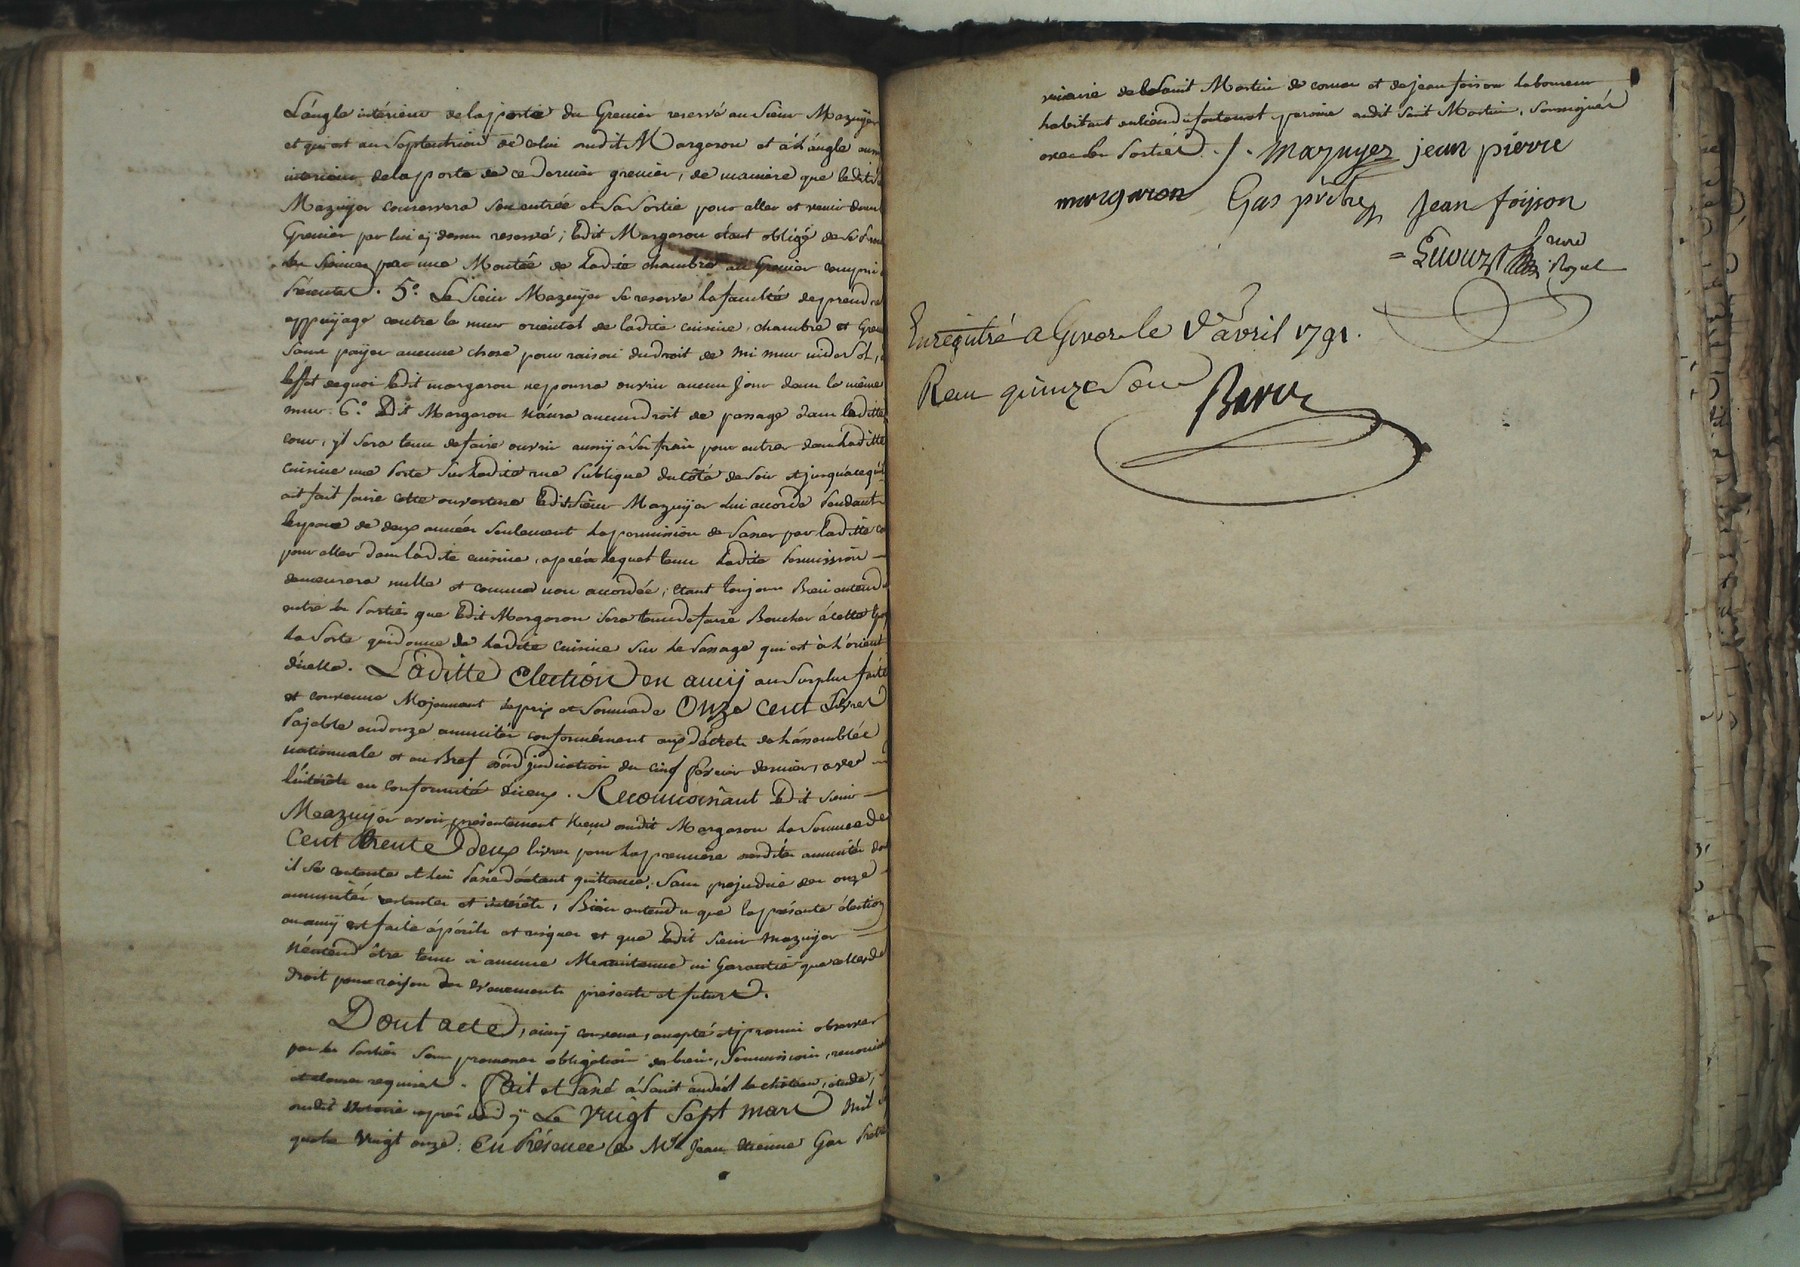 L'angle intérieur de la porte du Grenier reservé au Sieur Mazuyer
et qui est au Septentrion de celui audit Margaron et à L'angle aussi
interieur de la porte de ce dernier grenier, de maniere que ledit S
Mazuyer conservera son entrée et Sa Sortie pour aller et venir dans
Grenier par lui cy dessus reservé; ledit Margaron étant obligé de se
par une Montée de ladite chambre au Grenier compris
Présentes. 5º. Le Sieur Mazuyer se reserve la faculté de prendre
appuyage contre le mur oriental de ladite cuisine, chambre et Gren
Sans payer aucune chose pour raison du droit de mi mur ni de Sol, à
l'effet de quoi ledit margaron ne pourra ouvrir aucun Jour dans le même
mur. 6º. Ledit Margaron n'aura aucun droit de passage dans laditte
cour, il Sera tenu de faire ouvrir aussy à Ses frais pour entrer dans laditte
cuisine une Porte Sur ladite rue Publique du côté de Soir et jusqu'à ce qu'il
ait fait faire cette ouverture ledit Sieur Mazuyer lui accorde Pendant
l'espace de deux années Seulement la permission de Passer par laditte co
pour aller dans ladite cuisine, après lequel tems ladite Permission
demeurera nulle et comme non accordée, étant toujours Bien entendu
entre les Parties que ledit Margaron Sera tenu de faire Boucher à cette Epo
la Porte qui donne de ladite cuisine Sur le Passage qui est à L'orient
d'icelle. Laditte Election en amy au Surplus faite
et convenue Moyennant le prix et Somme de Onze cent Livres
Payable en douze annuités conformément aux décrets de l'assemblée
nationnale et au Bref d'adjudication du cinq fevrier dernier, avec
l'intérêts en conformité d'iceux. Reconnoissant ledit Sieur
Mazuyer avoir présentement Reçu audit Margaron la Somme de
Cent trente deux livres pour la première desdites annuités dont
il Se contente et lui Passe d'autant quittance, Sans prejudice des onze
annuités restantes et intérêts, Bien entendu que la présente élection
en amy est faite à périls et risques et que ledit Sieur Mazuyer
N'entend être tenu à aucune Maintenue ni Garantie que celles de
Droit pour raison des évenements présents et futurs.
Dont acte, ainsy convenu, accepté et promis observer
par les Parties Sous promesses obligation de biens, Soumissions, renonciat
et clauses requises. Fait et Passé à Saint andeol le château, étude
audit Notaire après midy Le Vingt Sept mars Mil S
quatre Vingt onze. En Présence de Mre Jean Etienne Gas Prêtre
vicaire de Saint Martin de cornas et de jean foison laboureur
habitant au lieu de fontanat paroisse audit Saint Martin, Soussignés
avec les Parties ./. Mazuyer jean pierre
margaron Gas prêtre Jean foijson
Royal
Enregistré a Givors le avril 1791.
Recu quinze Sous